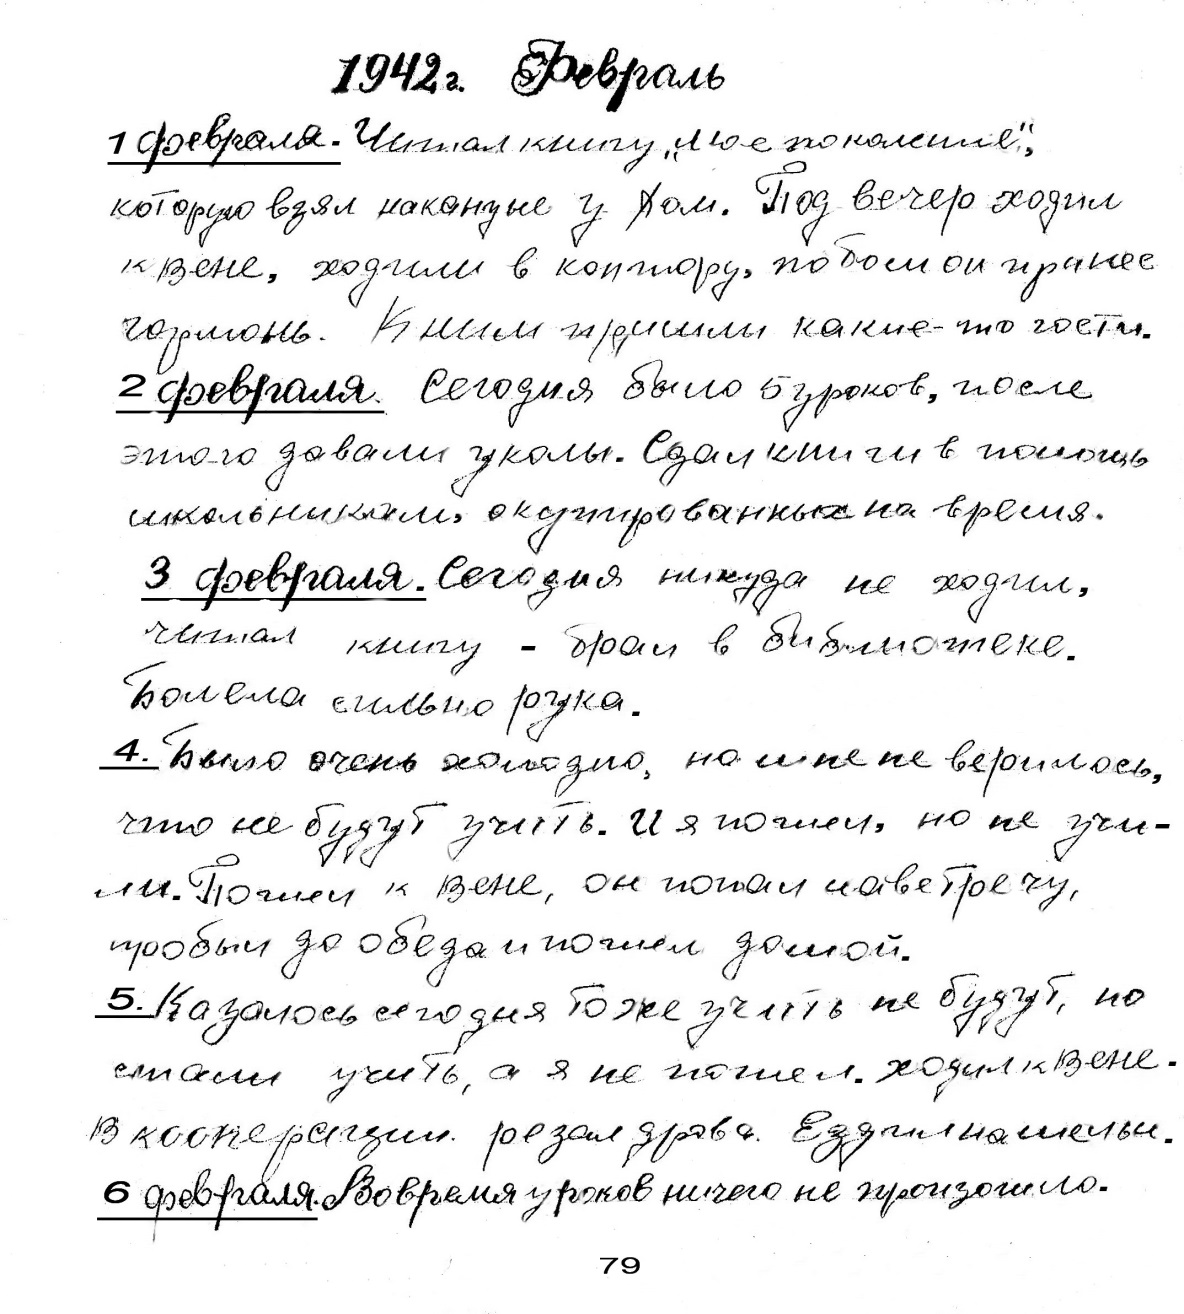 1942г. Февраль
1 февраля. Читал книгу „Мое поколение",
которую взял накануне у Дом. Под вечер ходил
к Вене, ходили в контору, потом он принес
гармонь. К ним пришли какие-то гости.
2 февраля. Сегодня было 5 уроков, после
этого давали уколы. Сдал книги в помощь
школьникам, окупированных на время.
3 февраля. Сегодня никуда не ходил,
читал книгу - брал в библиотеке.
Болела сильно рука.
4. Было очень холодно, но мне не верилось,
что не будут учить. И я пошел, но не учи-
ли. Пошел к Вене, он попал навстречу,
пробыл до обеда и пошел домой.
5. Казалось сегодня тоже учить не будут, но
стали учить, а я не пошел. Ходил к Вене.
В кооперации резал дрова. Ездил на мельн.
6 февраля. Вовремя уроков ничего не произошло.
79